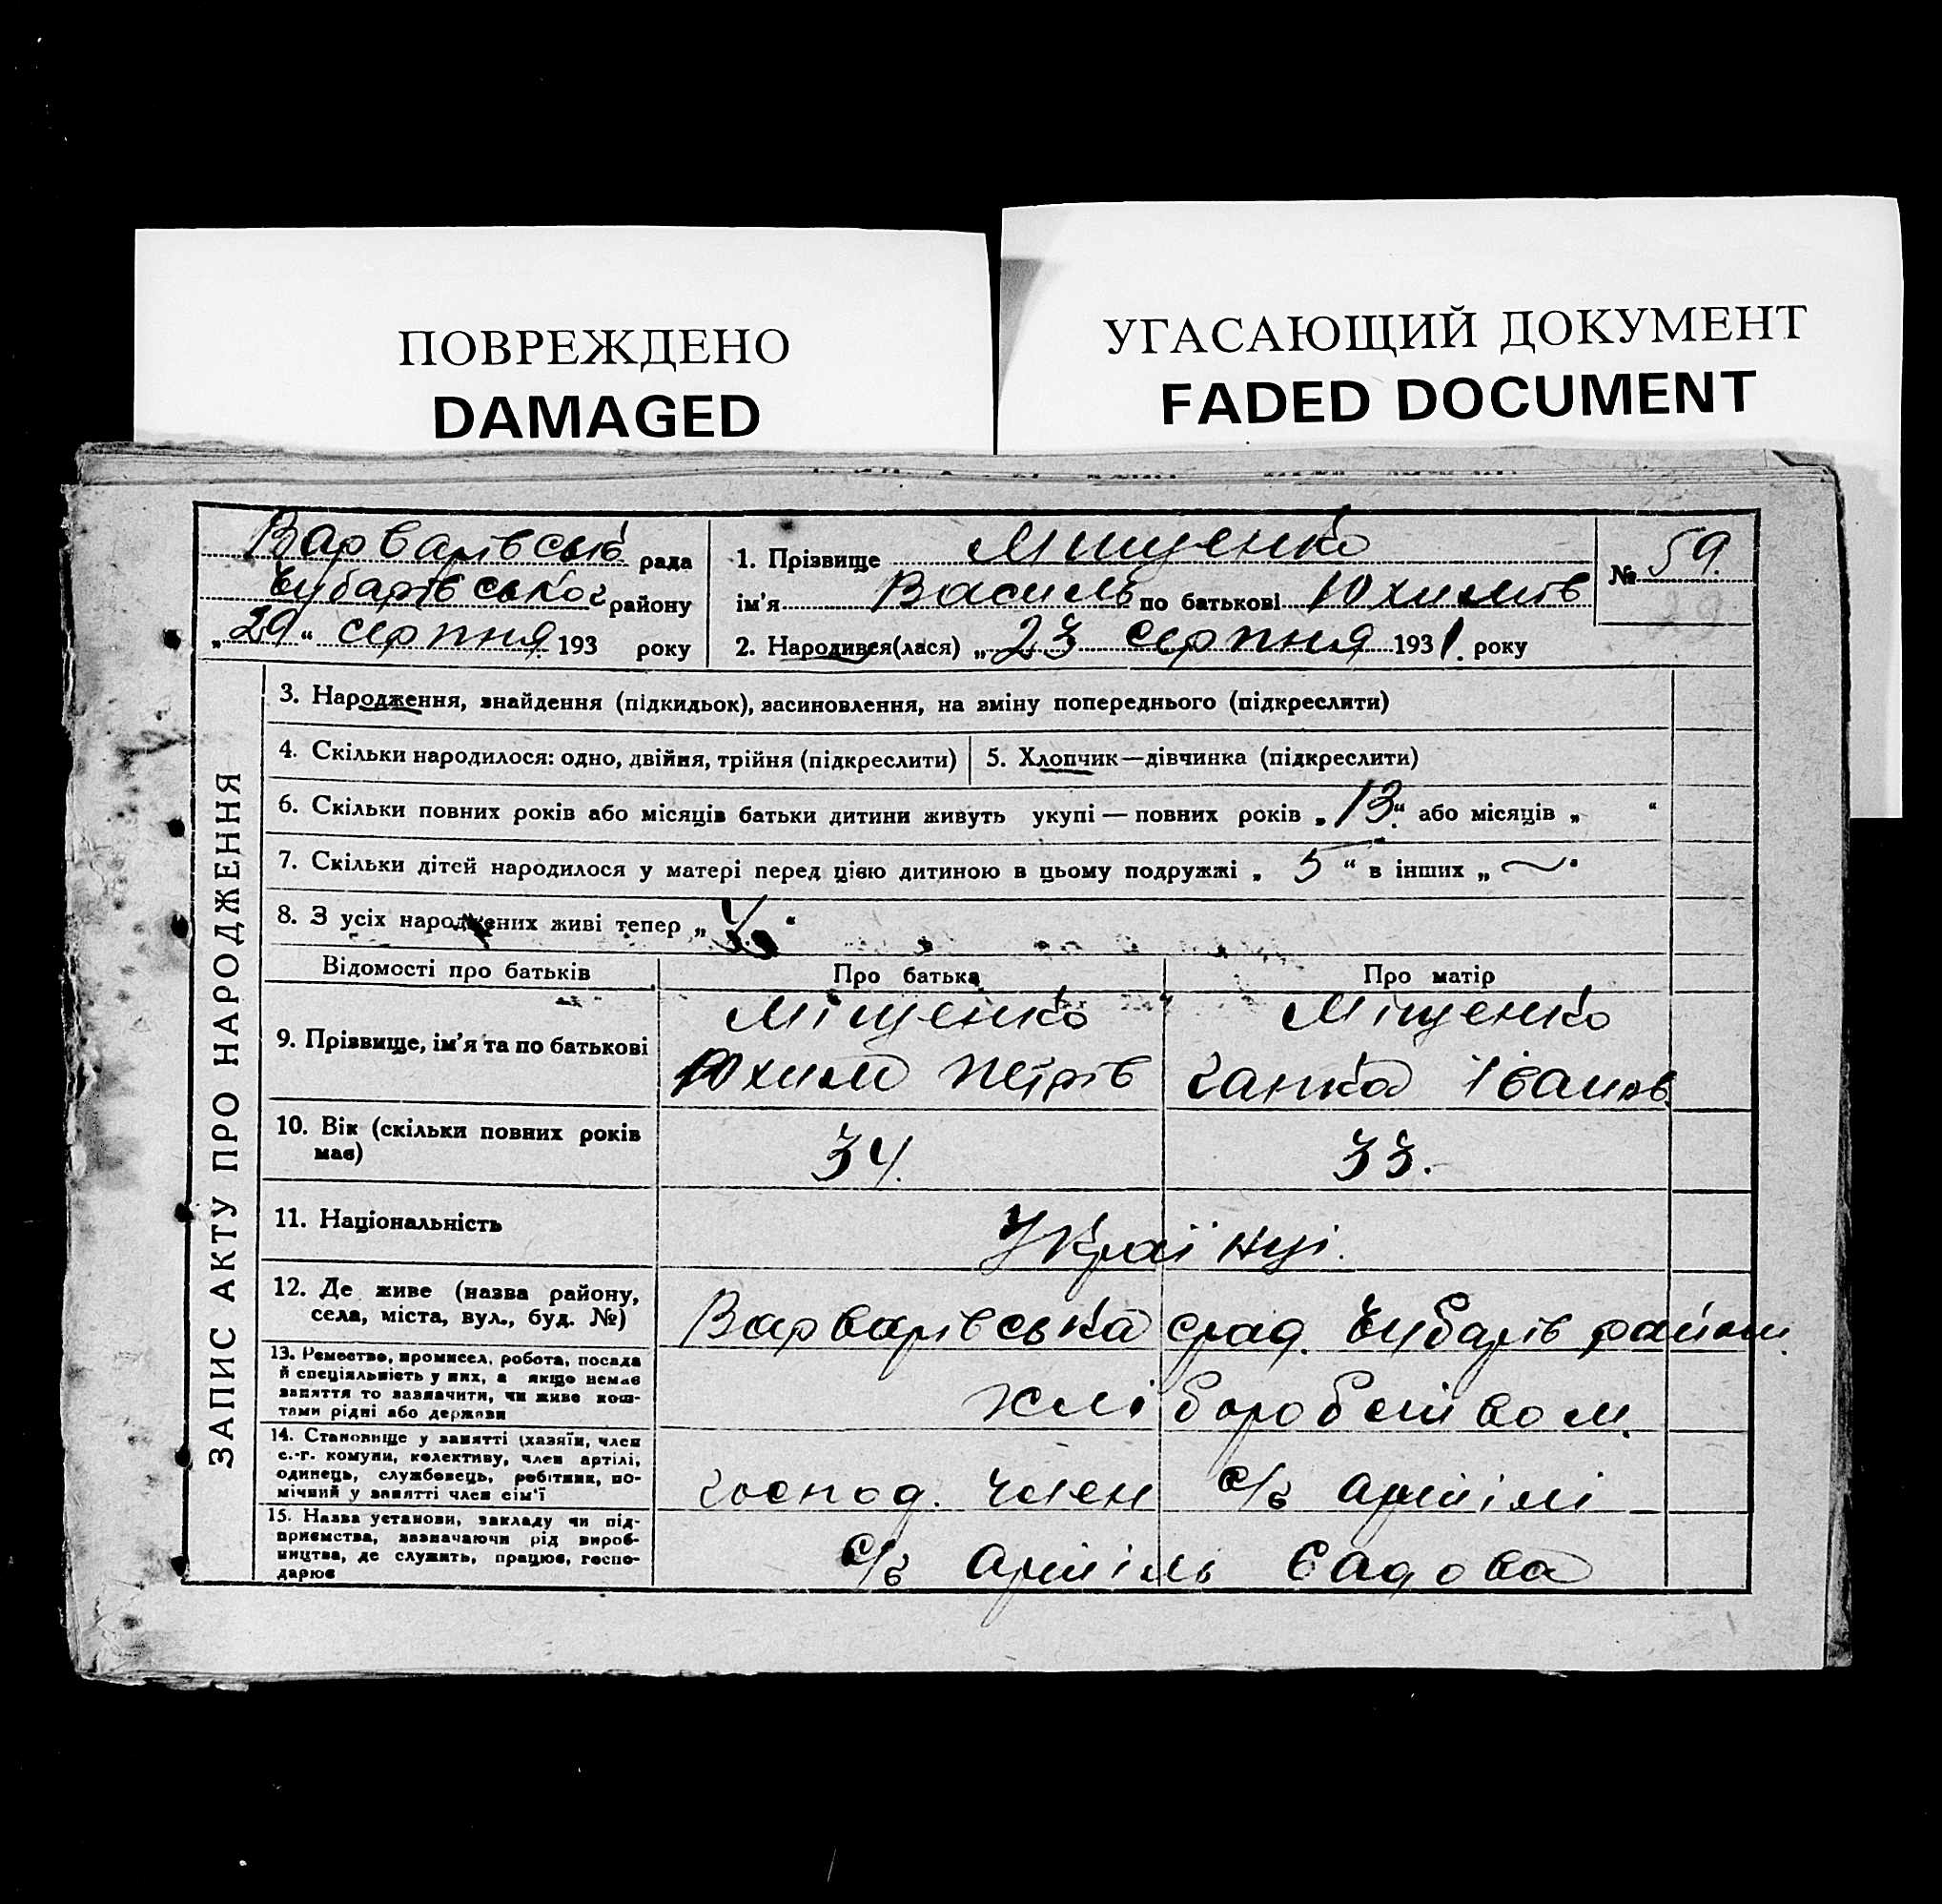 ПОВРЕЖДЕНО
DAMAGED
УГАСАЮЩИЙ ДОКУМЕНТ
FADED DOCUMENT
Варварівськ рада
Чубарівськог району
„29“ серпня 193 року
1. Прізвище Мищенко
ім'я Василь по батькові Юхимів
2. Народився(лася) „23 серпня 1931. року
№ 59.
29
ЗАПИС АКТУ ПРО НАРОДЖЕННЯ
3. Народження, знайдення (підкидьок), засиновлення, на зміну попереднього (підкреслити)
4. Скільки народилося: одно, двійня, трійня (підкреслити)
5. Хлопчик—дівчинка (підкреслити)
6. Скільки повних років або місяців батьки дитини живуть укупі — повних років „13“ або місяців „ “
7. Скільки дітей народилося у матері перед цією дитиною в цьому подружжі „ 5 “ в інших „ — “
8. З усіх народжених живі тепер „ “
Відомості про батьків Про батька Про матір
9. Прізвище, ім'я та по батькові
Міщенко Міщенко
Юхим Петрів Ганна Іванов.
10. Вік (скільки повних років має)
34. 33.
11. Національність
Українці.
12. Де живе (назва району,
села, міста, вул., буд. №)
Варварівська срад. Чубарів район.
13. Ремество, промисел, робота, посада
й спеціяльність у них, а якщо немає
заняття то зазначити, чи живе кош-
тами рідні або держави
хліборобством.
14. Становище у занятті (хазяїн, член
с.-г. комуни, колективу, член артілі,
одинець, службовець, робітник, по-
мічний у занятті член сім'ї
господ. член с/г артілі
15. Назва установи, закладу чи під-
приємства, зазначаючи рід вироб-
ництва, де служить, працює, госпо-
дарює
с/г артіль Садова